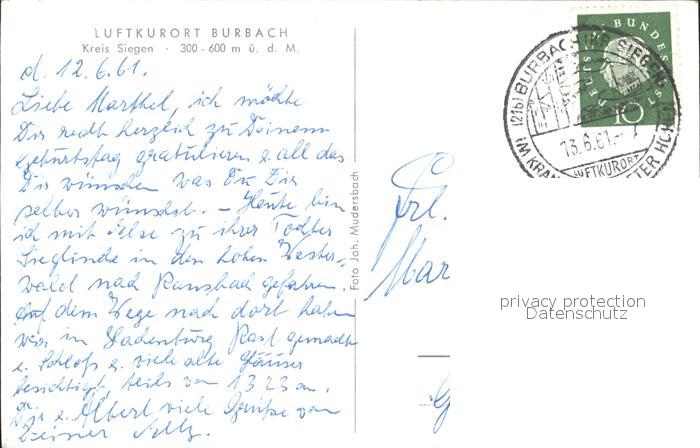 LUFTKURORT BURBACH
Kreis Siegen · 300-600 m ü. d. M.
d. 12.6.61.
Liebe Marthel, ich möchte
Dir recht herzlich zu Deinem
Geburtstag gratulieren u. all das
Dir wünschen was Du Dir
selber wünschst. – Heute bin
ich mit Else zu ihrer Tochter
Sieglinde in den hohen Wester-
wald nach Ransbach gefahren.
Auf dem Wege nach dort haben
wir in Hadenburg Rast gemacht
u. Schloß u. viele alte Häuser
besichtigt, teils von 1323 an.
Dir u. Albert viele Grüße von
Deiner
Foto Joh. Mudersbach
Frl.
Mar
DEUTSCHE BUNDESPOST
10
(21b) BURBACH (KR SIEGEN)
13.6.61.-7
LUFTKURORT
IM KRANZ
privacy protection
Datenschutz